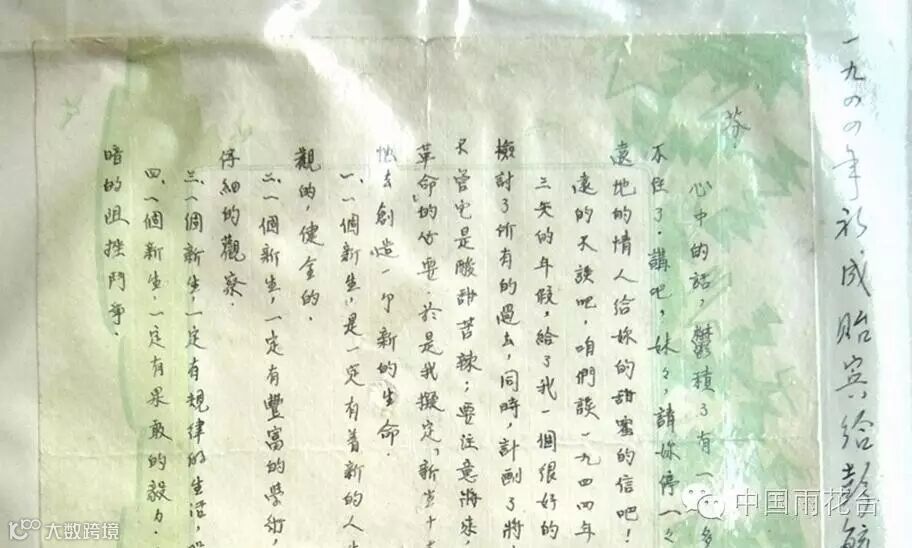 一九四四年 成貽宾給彭
芬
心中的話，鬱積了有一 多
不住了．講吧，妹々，請妳停一々
遠地的情人給妳的甜蜜的信吧！
遠的天談吧，咱們談一九四四年
三天的年假，給了我一個很好的
檢討了所有的過去，同時，計劃了將
不管它是酸甜苦辣；要注意將來，
革命」的必要．於是我擬定「新生十
去創造一 新的生命．
一、一個新生，是一定有着新的人
觀的，健全的．
二、一個新生，一定有豐富的學術，
仔細的觀察．
三、一個新生，一定有規律的生活，
四、一個新生，一定有果敢的毅力．
暗的阻挫鬥爭．
中国雨花台
大数跨境